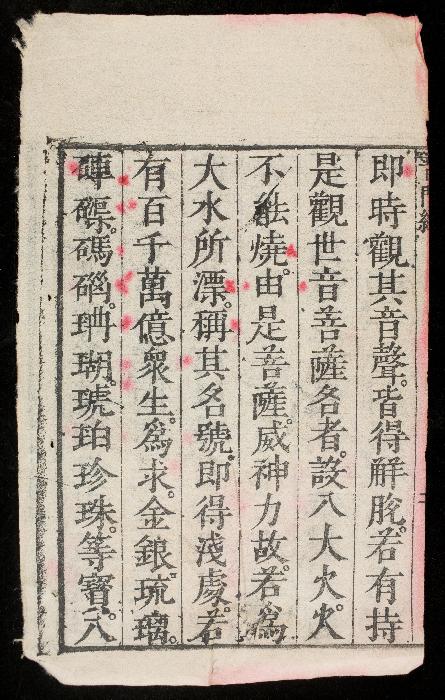 即時觀其音聲。皆得解脫。若有持
是觀世音菩薩名者。設入大火。火
不能燒。由是菩薩。威神力故。若爲
大水所漂。稱其名號。即得淺處。若
有百千萬億衆生。爲求。金銀。琉璃。
硨磲。碼碯。珊瑚。琥珀珍珠。等寶。入